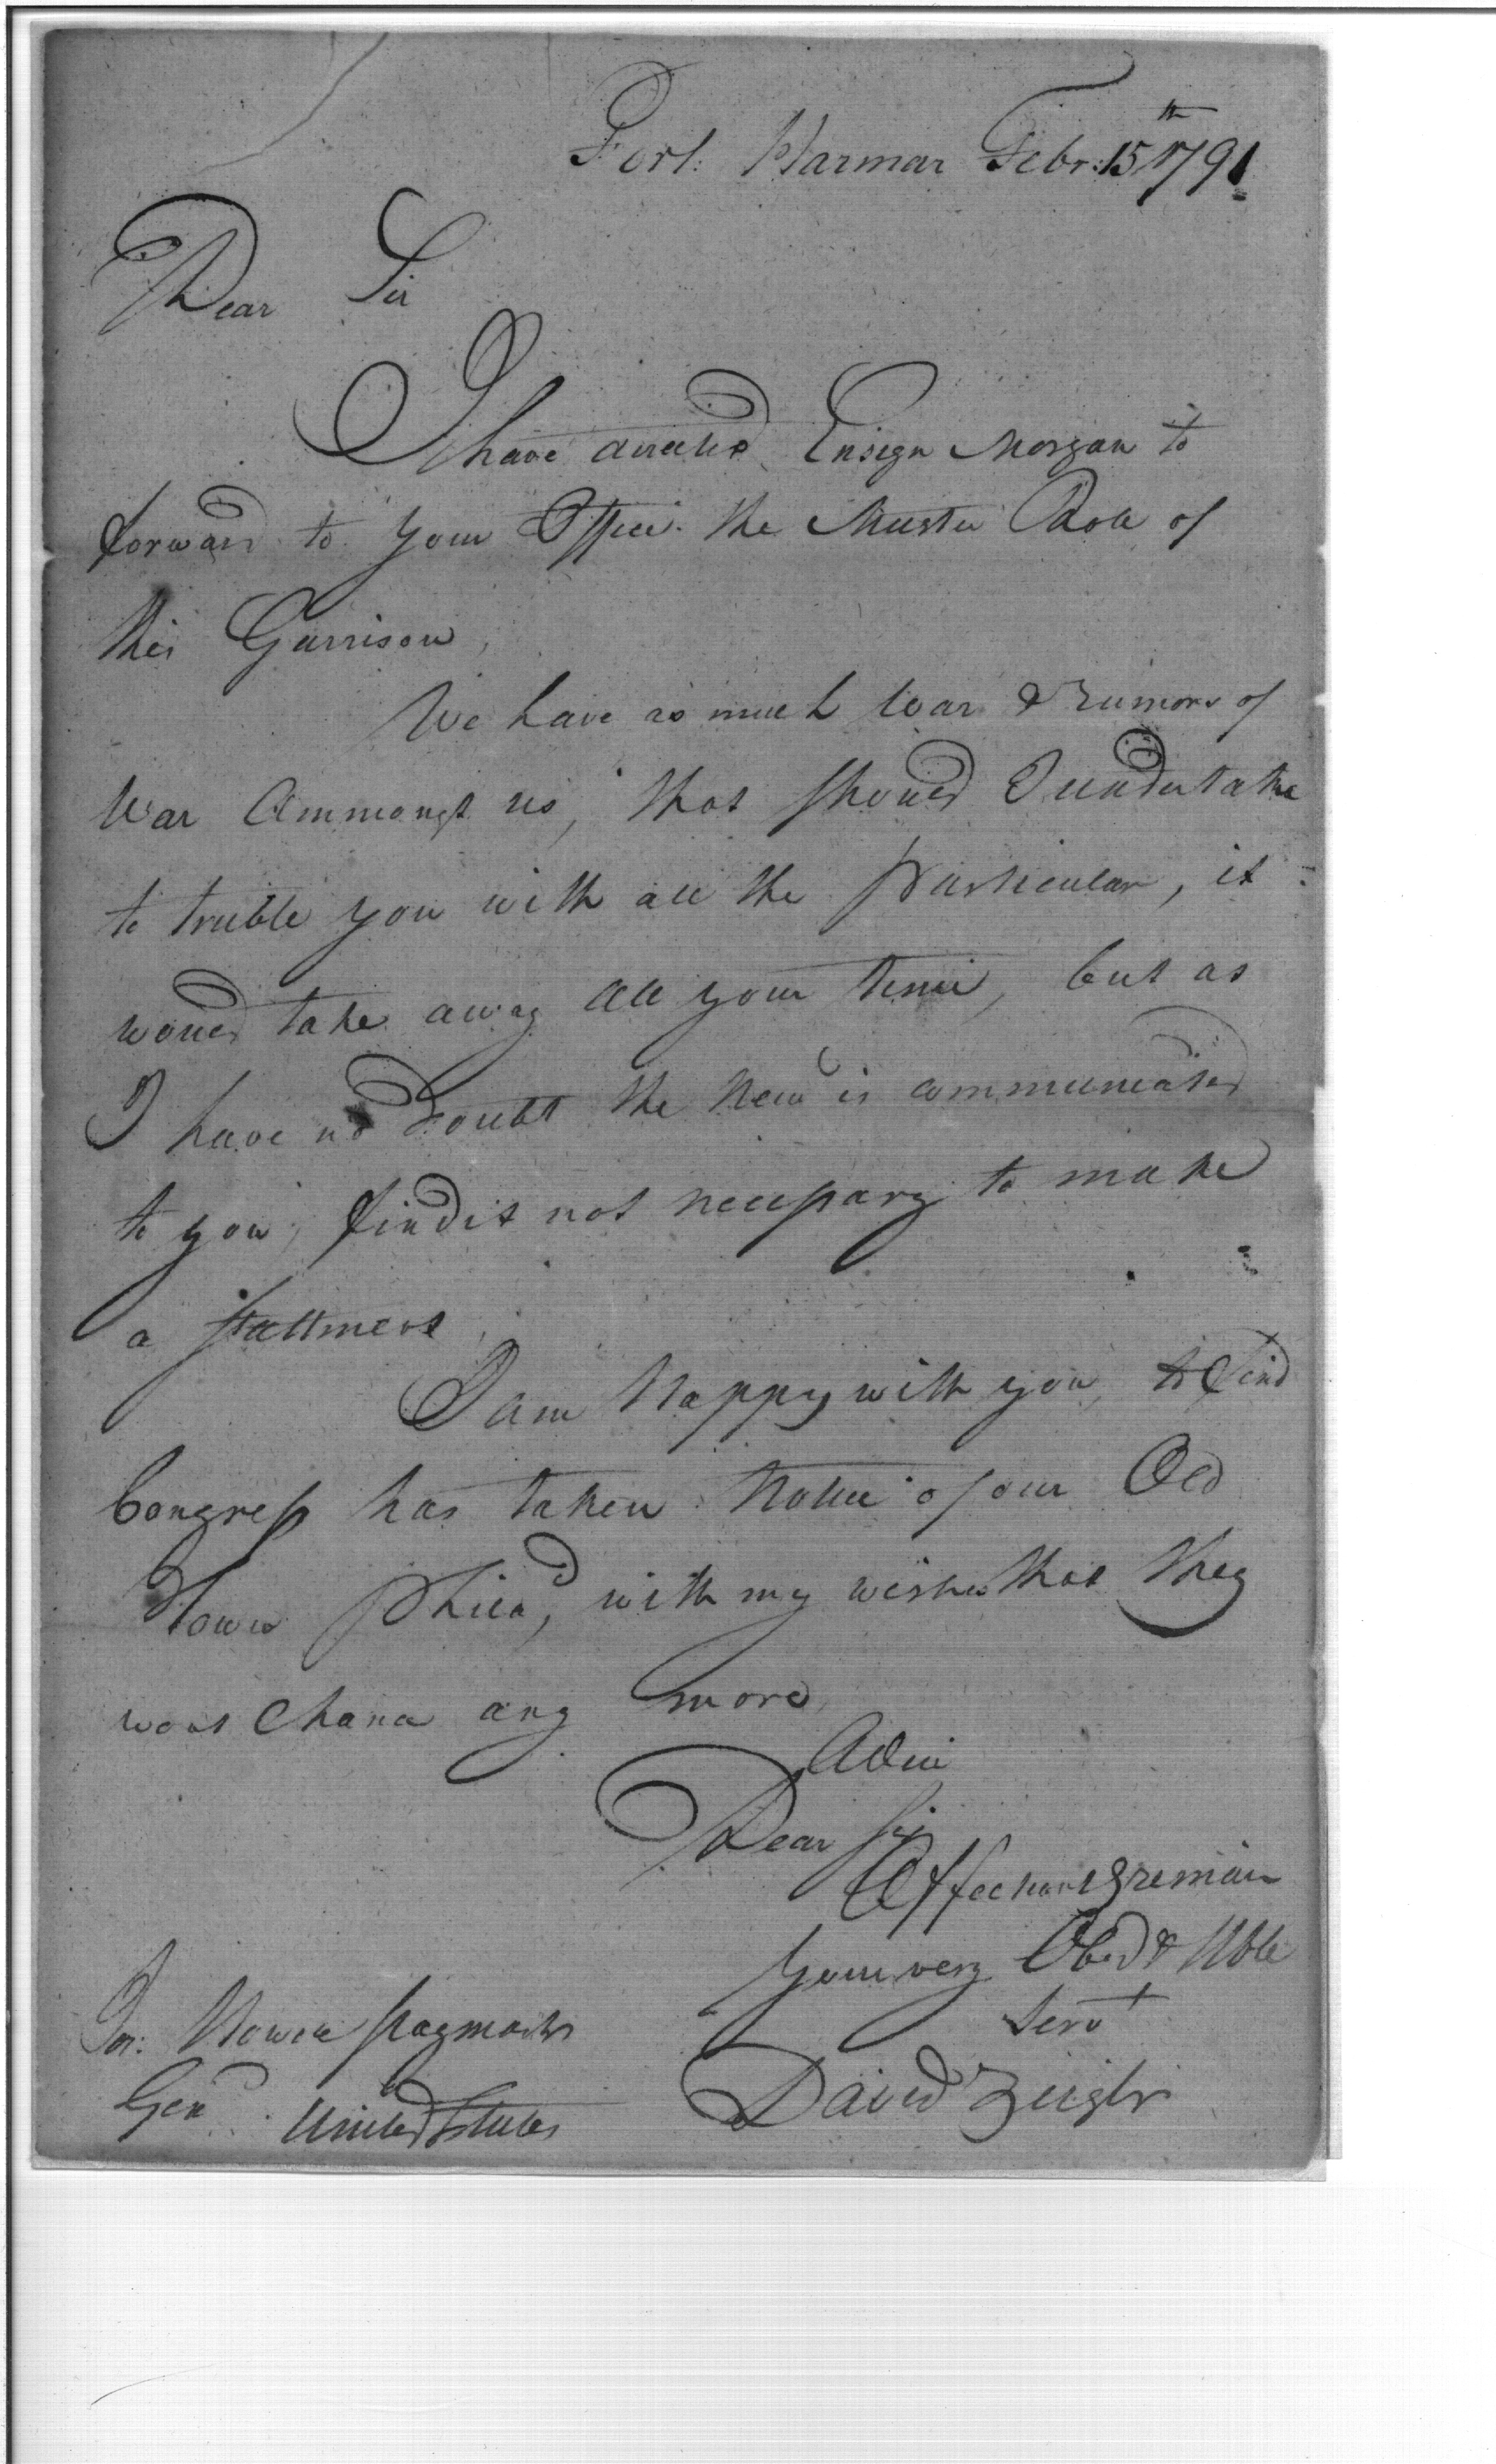 Fort Harmar Febr: 15th 1791
Dear Sir
I have directed Ensign Morgan to
forward to your Office the Muster Role of
this Garrison,
We have so much War & Rumors of
War Ammongst us, that should I undertake
to truble you with all the particular, it
would take away all your time, but as
I have no doubt the New is communicated
to you, find it not necessary to make
a stattment,
I am happy with you, to find
Congress has taken Notice of our Old
Town Phila, with my wishes that they
wont any more
Adui
Dear Sir
Affectionat & remain
Your very Obed & Hble
Servt
David Zeigler
Jos: Howell paymaster
Genl United States